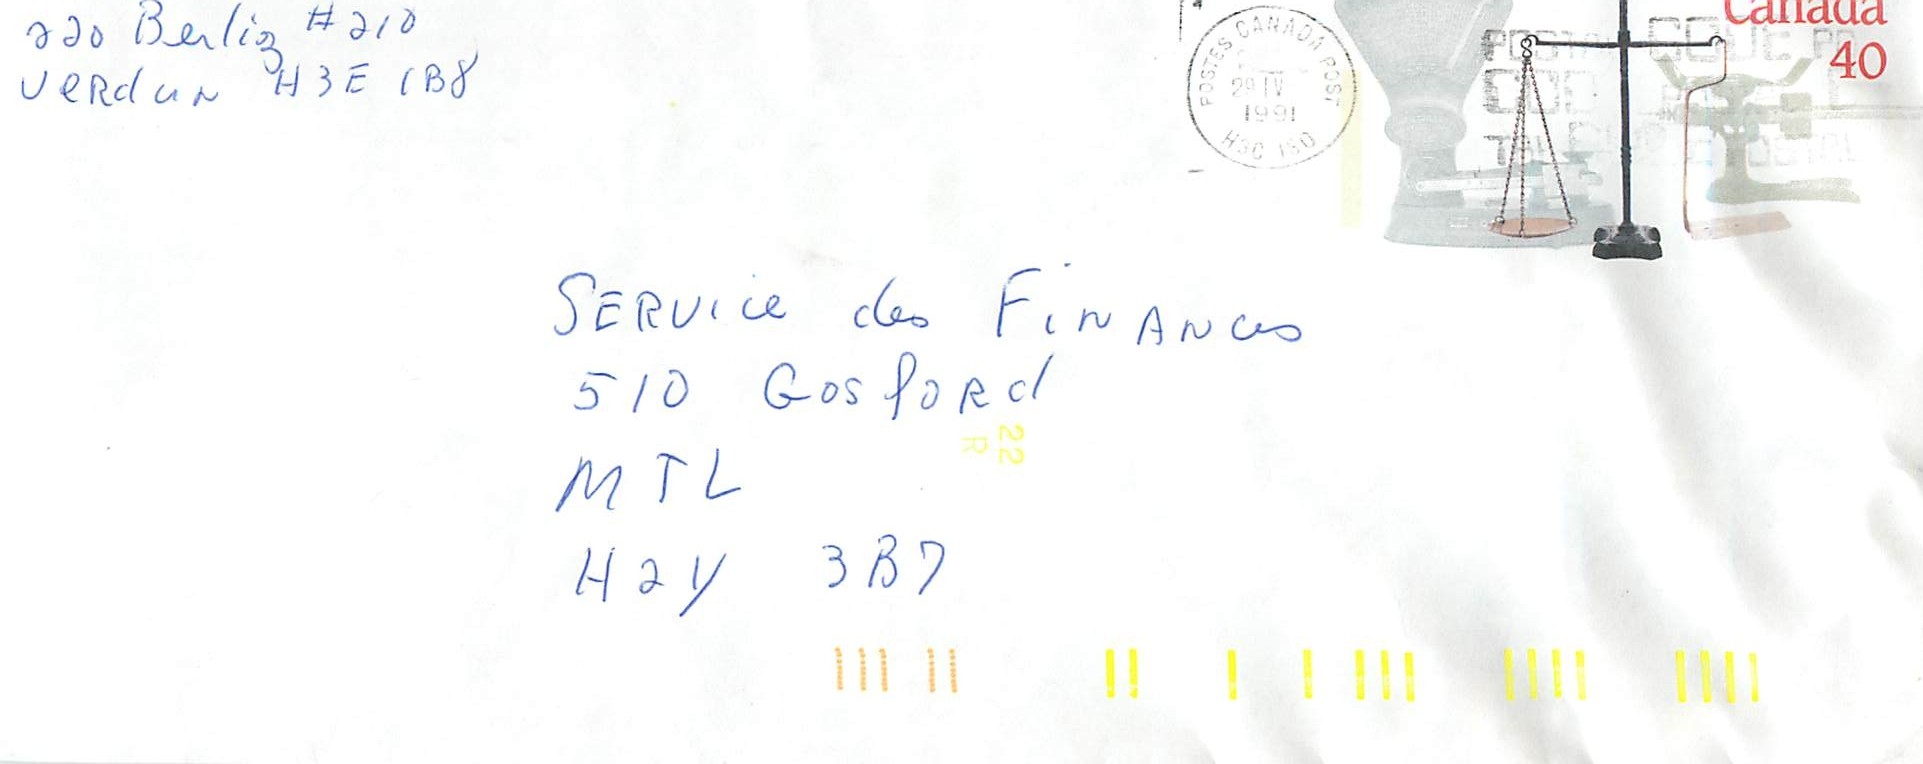 220 Berliz #210
Verdun H3E 1B8
POSTES CANADA POST
29 IV
1991
H3C 1S0
Canada
40
SERVice des FiNANces
510 GosfoRd
22
R
MTL
H2Y 3B7